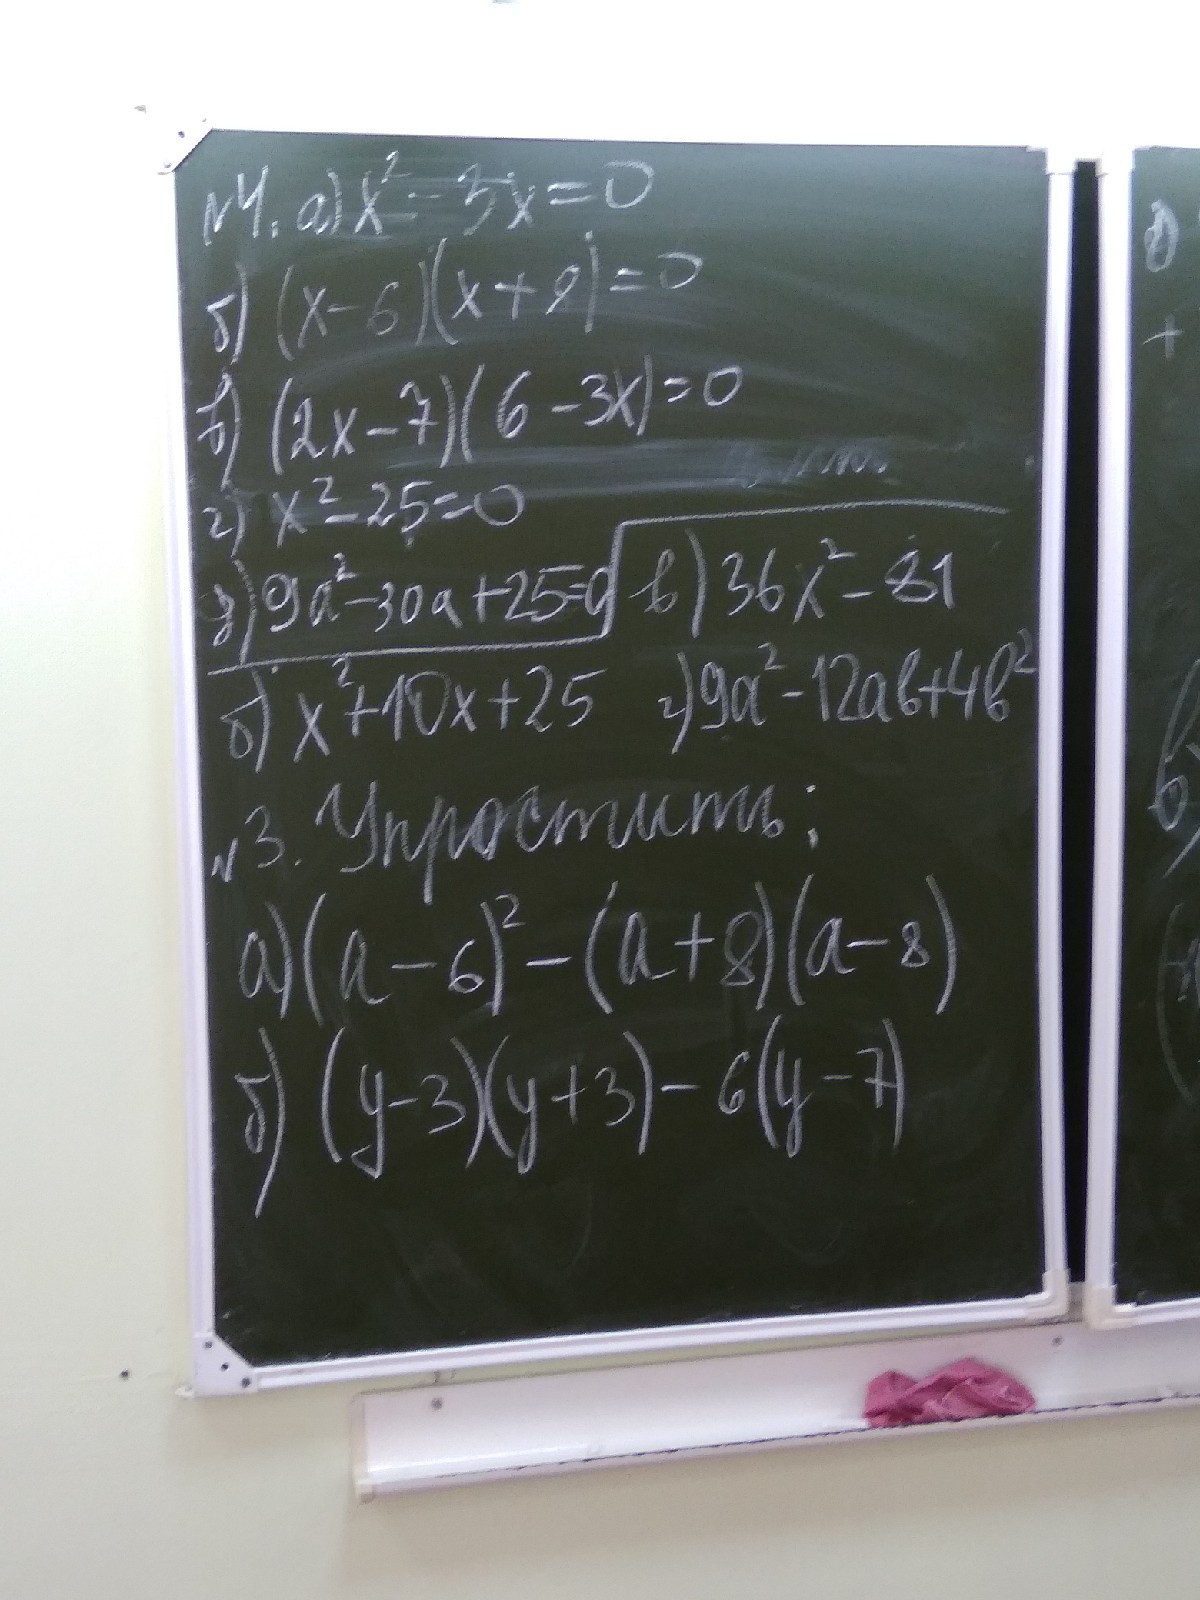 №4. а) x² - 3x = 0
б) (x - 6)(x + 9) = 0
в) (2x - 7)(6 - 3x) = 0
г) x² - 25 = 0
д) 9a² - 30a + 25 = 0
в) 36x² - 81
б) x² + 10x + 25 г) 9a² - 12ab + 4b²
№3. Упростить:
а) (a - 6)² - (a + 8)(a - 8)
б) (y - 3)(y + 3) - 6(y - 7)